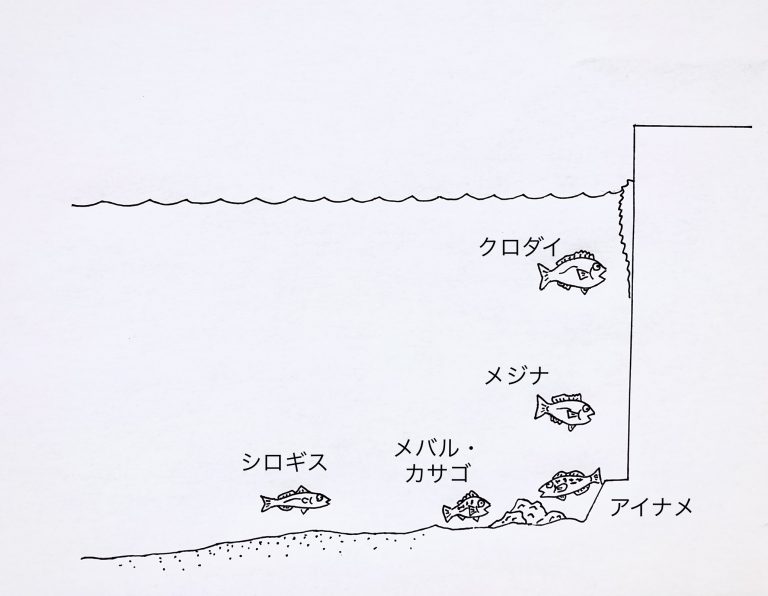 クロダイ
メジナ
シロギス
メバル・
カサゴ
アイナメ